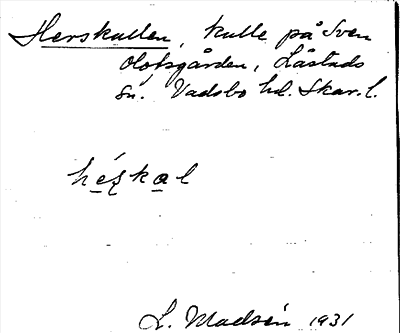 Herskullen, kulle på Sven
Olofsgården, Låstads
sn. Vadsbo hd. Skar. l.
héskal
L. Madsén 1931